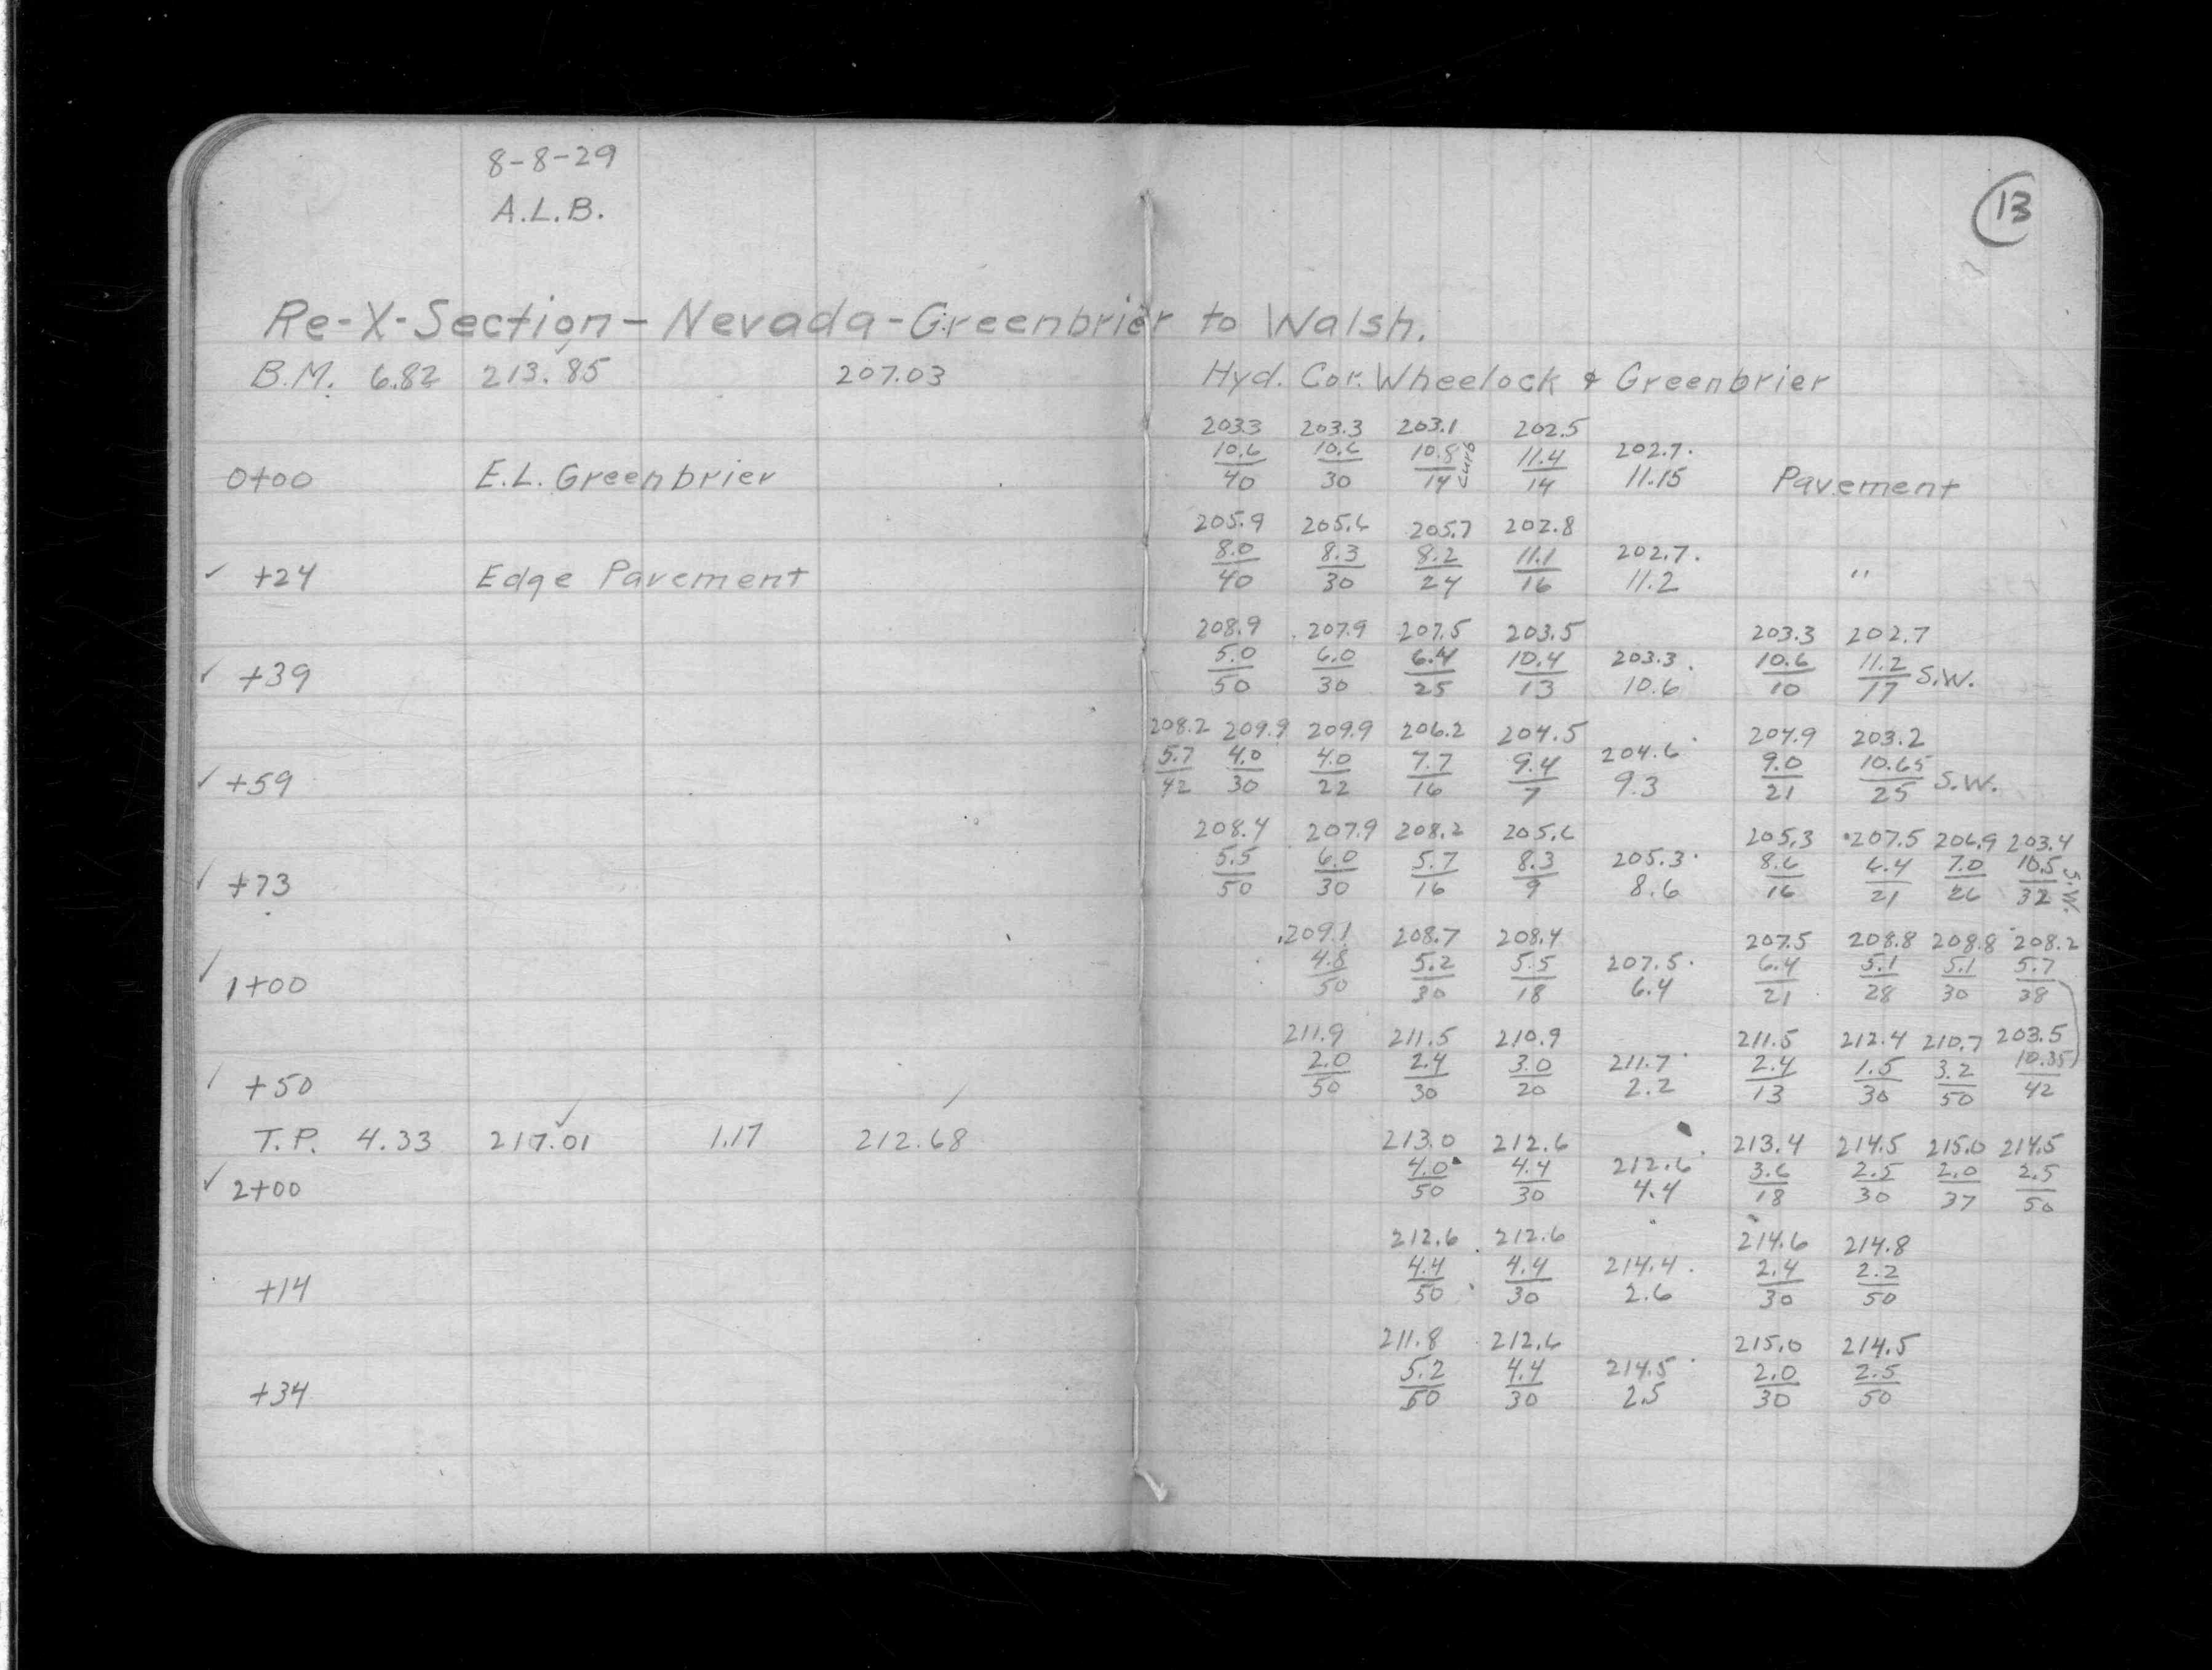 8-8-29
A.L.B.
13
Re-X-Section - Nevada - Greenbrier to Walsh.
B.M. 6.82 213.85 207.03 Hyd. Cor. Wheelock & Greenbrier
203.3 203.3 203.1 202.5
10.6 10.6 10.8 Curb 11.4 202.7.
0+00 E.L. Greenbrier 40 30 14 14 11.15 Pavement
205.9 205.6 205.7 202.8
8.0 8.3 8.2 11.1 202.7.
✓ +24 Edge Pavement 40 30 24 16 11.2 "
208.9 207.9 207.5 203.5 203.3 202.7
5.0 6.0 6.4 10.4 203.3. 10.6 11.2 S.W.
✓ +39 50 30 25 13 10.6 10 17
208.2 209.9 209.9 206.2 204.5 204.9 203.2
5.7 4.0 4.0 7.7 9.4 204.6 9.0 10.65 S.W.
✓ +59 42 30 22 16 7 9.3 21 25
208.4 207.9 208.2 205.6 205.3 207.5 206.9 203.4
5.5 6.0 5.7 8.3 205.3. 8.6 6.4 7.0 10.5 S.W.
✓ +73 50 30 16 9 8.6 16 21 26 32
209.1 208.7 208.4 207.5 208.8 208.8 208.2
4.8 5.2 5.5 207.5. 6.4 5.1 5.1 5.7
✓ 1+00 50 30 18 6.4 21 28 30 38
211.9 211.5 210.9 211.5 212.4 210.7 203.5
2.0 2.4 3.0 211.7. 2.4 1.5 3.2 10.35
✓ +50 50 30 20 2.2 13 30 50 42
T.P. 4.33 217.01 1.17 212.68 213.0 212.6 213.4 214.5 215.0 214.5
4.0 4.4 212.6. 3.6 2.5 2.0 2.5
✓ 2+00 50 30 4.4 18 30 37 50
212.6 212.6 214.6 214.8
4.4 4.4 214.4. 2.4 2.2
+14 50 30 2.6 30 50
211.8 212.6 215.0 214.5
5.2 4.4 214.5. 2.0 2.5
+34 50 30 2.5 30 50